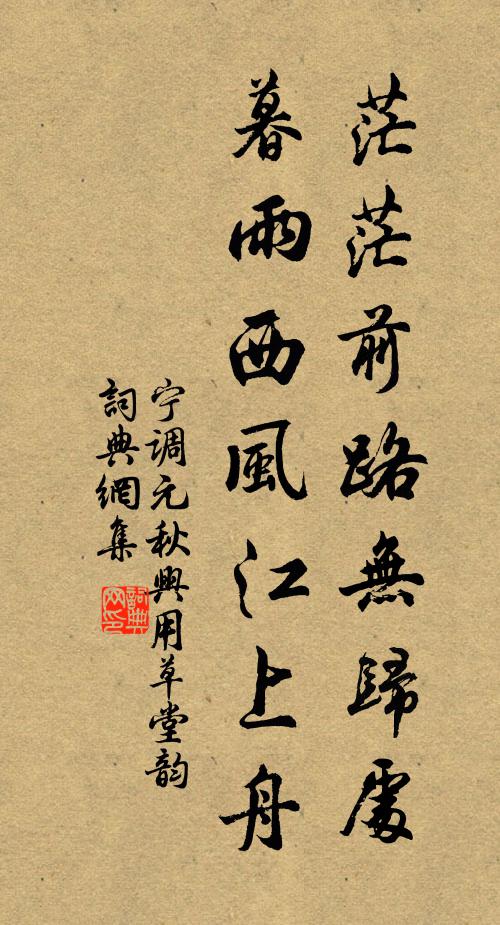 茫茫前路無歸處
暮雨西風江上舟
宁調元秋興用草堂韵
詞典網集
詞典网印